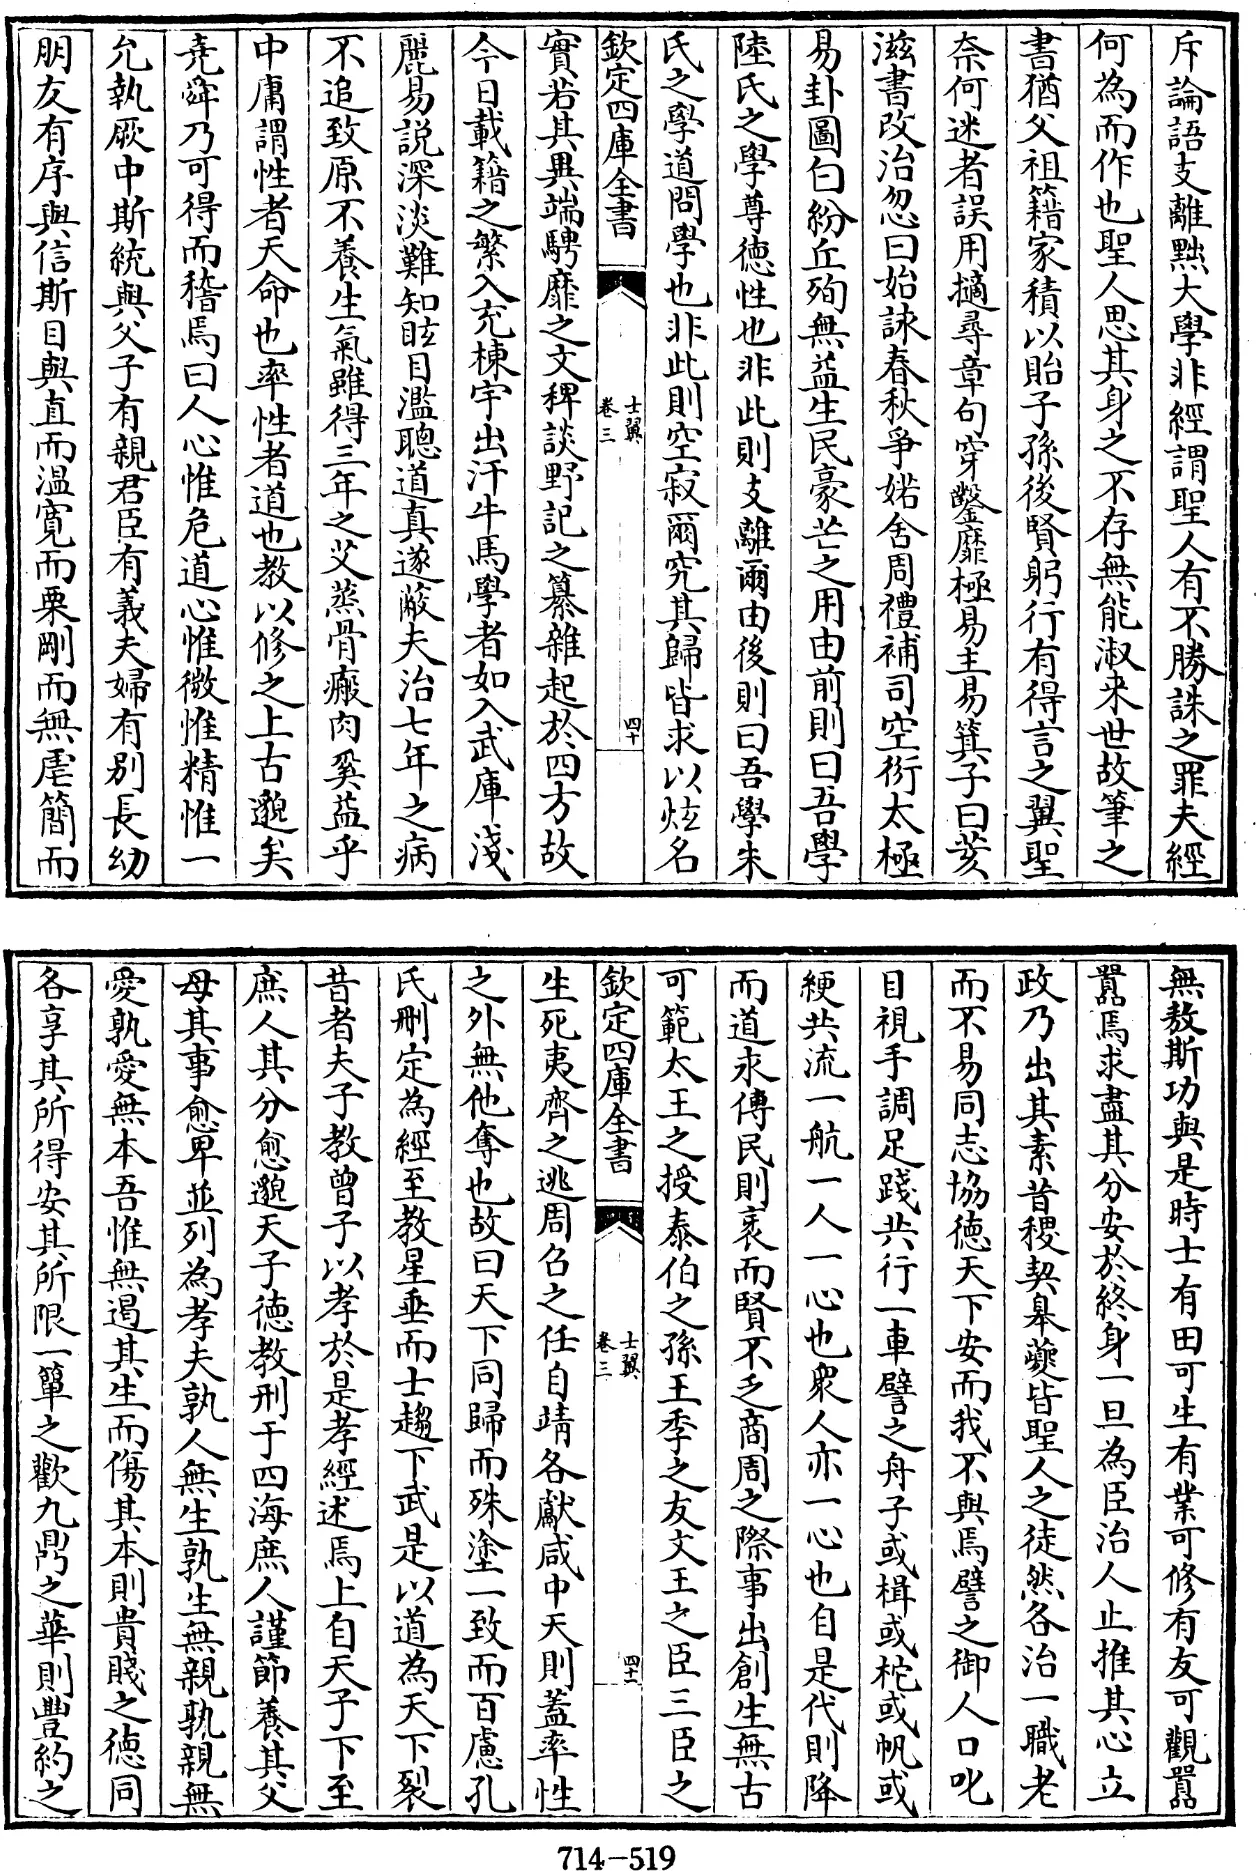 斥論語支離黜大學非經謂聖人有不勝誅之罪夫經
何為而作也聖人思其身之不存無能淑来世故筆之
書猶父祖籍家積以貽子孫後賢躬行有得言之翼聖
奈何迷者誤用擿尋章句穿鑿靡極易主易箕子曰荄
滋書改治忽曰始詠春秋爭婼舍周禮補司空衍太極
易卦圖白紛丘殉無益生民豪芒之用由前則曰吾學
陸氏之學尊德性也非此則支離爾由後則曰吾學朱
氏之學道問學也非此則空寂爾究其歸皆求以炫名
欽定四庫全書
士翼
卷三
四十
實若其異端騁靡之文稗談野記之纂雜起於四方故
今日載籍之繁入充棟宇出汗牛馬學者如入武庫淺
麗易說深淡難知眩目濫聰道真遂蔽夫治七年之病
不追致原不養生氣雖得三年之艾蒸骨瘢肉奚益乎
中庸謂性者天命也率性者道也教以修之上古邈矣
堯舜乃可得而稽焉曰人心惟危道心惟微惟精惟一
允執厥中斯統與父子有親君臣有義夫婦有别長幼
朋友有序與信斯目與直而溫寬而栗剛而無虐簡而
無敖斯功與是時士有田可生有業可修有友可觀囂
囂焉求盡其分安於終身一旦為臣治人止推其心立
政乃出其素昔稷契皋夔皆聖人之徒然各治一職老
而不易同志協德天下安而我不與焉譬之御人口叱
目視手調足踐共行一車譬之舟子或楫或柁或帆或
綆共流一航一人一心也衆人亦一心也自是代則降
而道永傳民則衰而賢不乏商周之際事出創生無古
可範太王之授泰伯之孫王季之友文王之臣三臣之
欽定四庫全書
士翼
卷三
四十一
生死夷齊之逃周召之任自靖各獻咸中天則蓋率性
之外無他奪也故曰天下同歸而殊塗一致而百慮孔
氏刪定為經至教星垂而士趨下武是以道為天下裂
昔者夫子教曾子以孝於是孝經述焉上自天子下至
庶人其分愈邈天子德教刑于四海庶人謹節養其父
母其事愈卑並列為孝夫孰人無生孰生無親孰親無
愛孰愛無本吾惟無遏其生而傷其本則貴賤之德同
各享其所得安其所限一簞之歡九鼎之華則豐約之
714-519